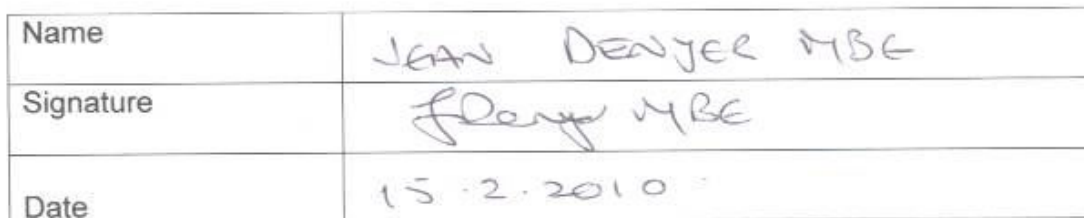 Name JEAN DENYER MBE
Signature JDenyer MBE
Date 15.2.2010